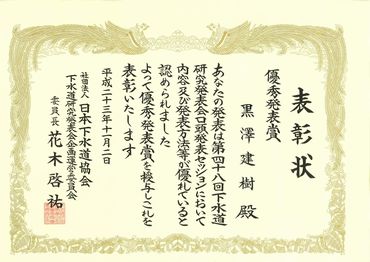 表彰状
優秀発表賞
黒澤建樹殿
あなたの発表は第四十八回下水道
研究発表会口頭発表セッションにおいて
内容及び発表方法等が優れていると
認められました
よって優秀発表賞を授与しこれを
表彰いたします
平成二十三年十一月二日
社団法人日本下水道協会
下水道研究発表会企画運営委員会
委員長花木啓祐